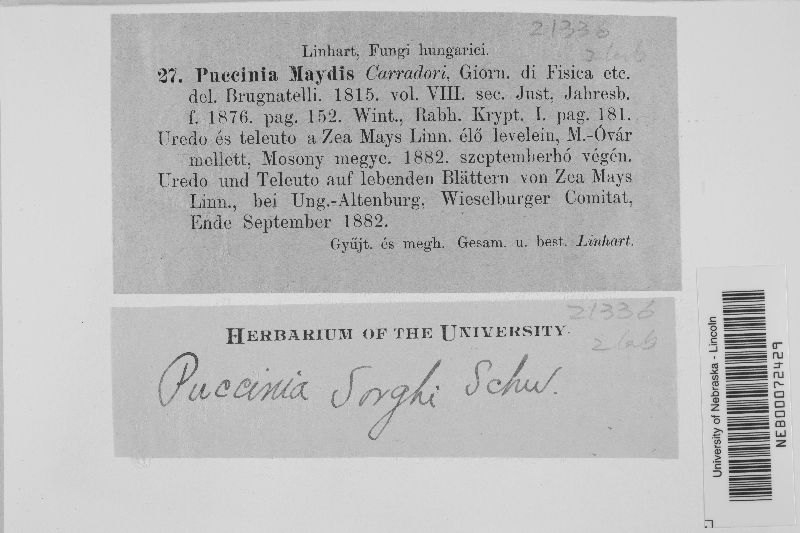 21336
2 lab
Linhart, Fungi hungarici.
27. Puccinia Maydis Carradori, Giorn. di Fisica etc.
del. Brugnatelli. 1815. vol. VIII. sec. Just, Jahresb.
f. 1876. pag. 152. Wint., Rabh. Krypt. I. pag. 181.
Uredo és teleuto a Zea Mays Linn. élő levelein, M.-Óvár
mellett, Mosony megye. 1882. szeptemberhó végén.
Uredo und Teleuto auf lebenden Blättern von Zea Mays
Linn., bei Ung.-Altenburg, Wieselburger Comitat,
Ende September 1882.
Gyűjt. és megh. Gesam. u. best. Linhart.
21336
2 lab
HERBARIUM OF THE UNIVERSITY.
Puccinia Sorghi Schw.
University of Nebraska - Lincoln
NEB00072429